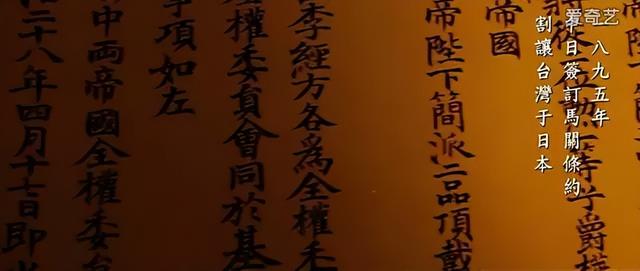 爱奇艺
八九五年
中日簽訂馬關條約
割讓台灣于日本
帝陛下
等子爵
帝國
帝陛下簡派二品頂戴
李經方各爲全權委
權委員會同於基
事項如左
中両帝國全權委
二十八年四月十七日即